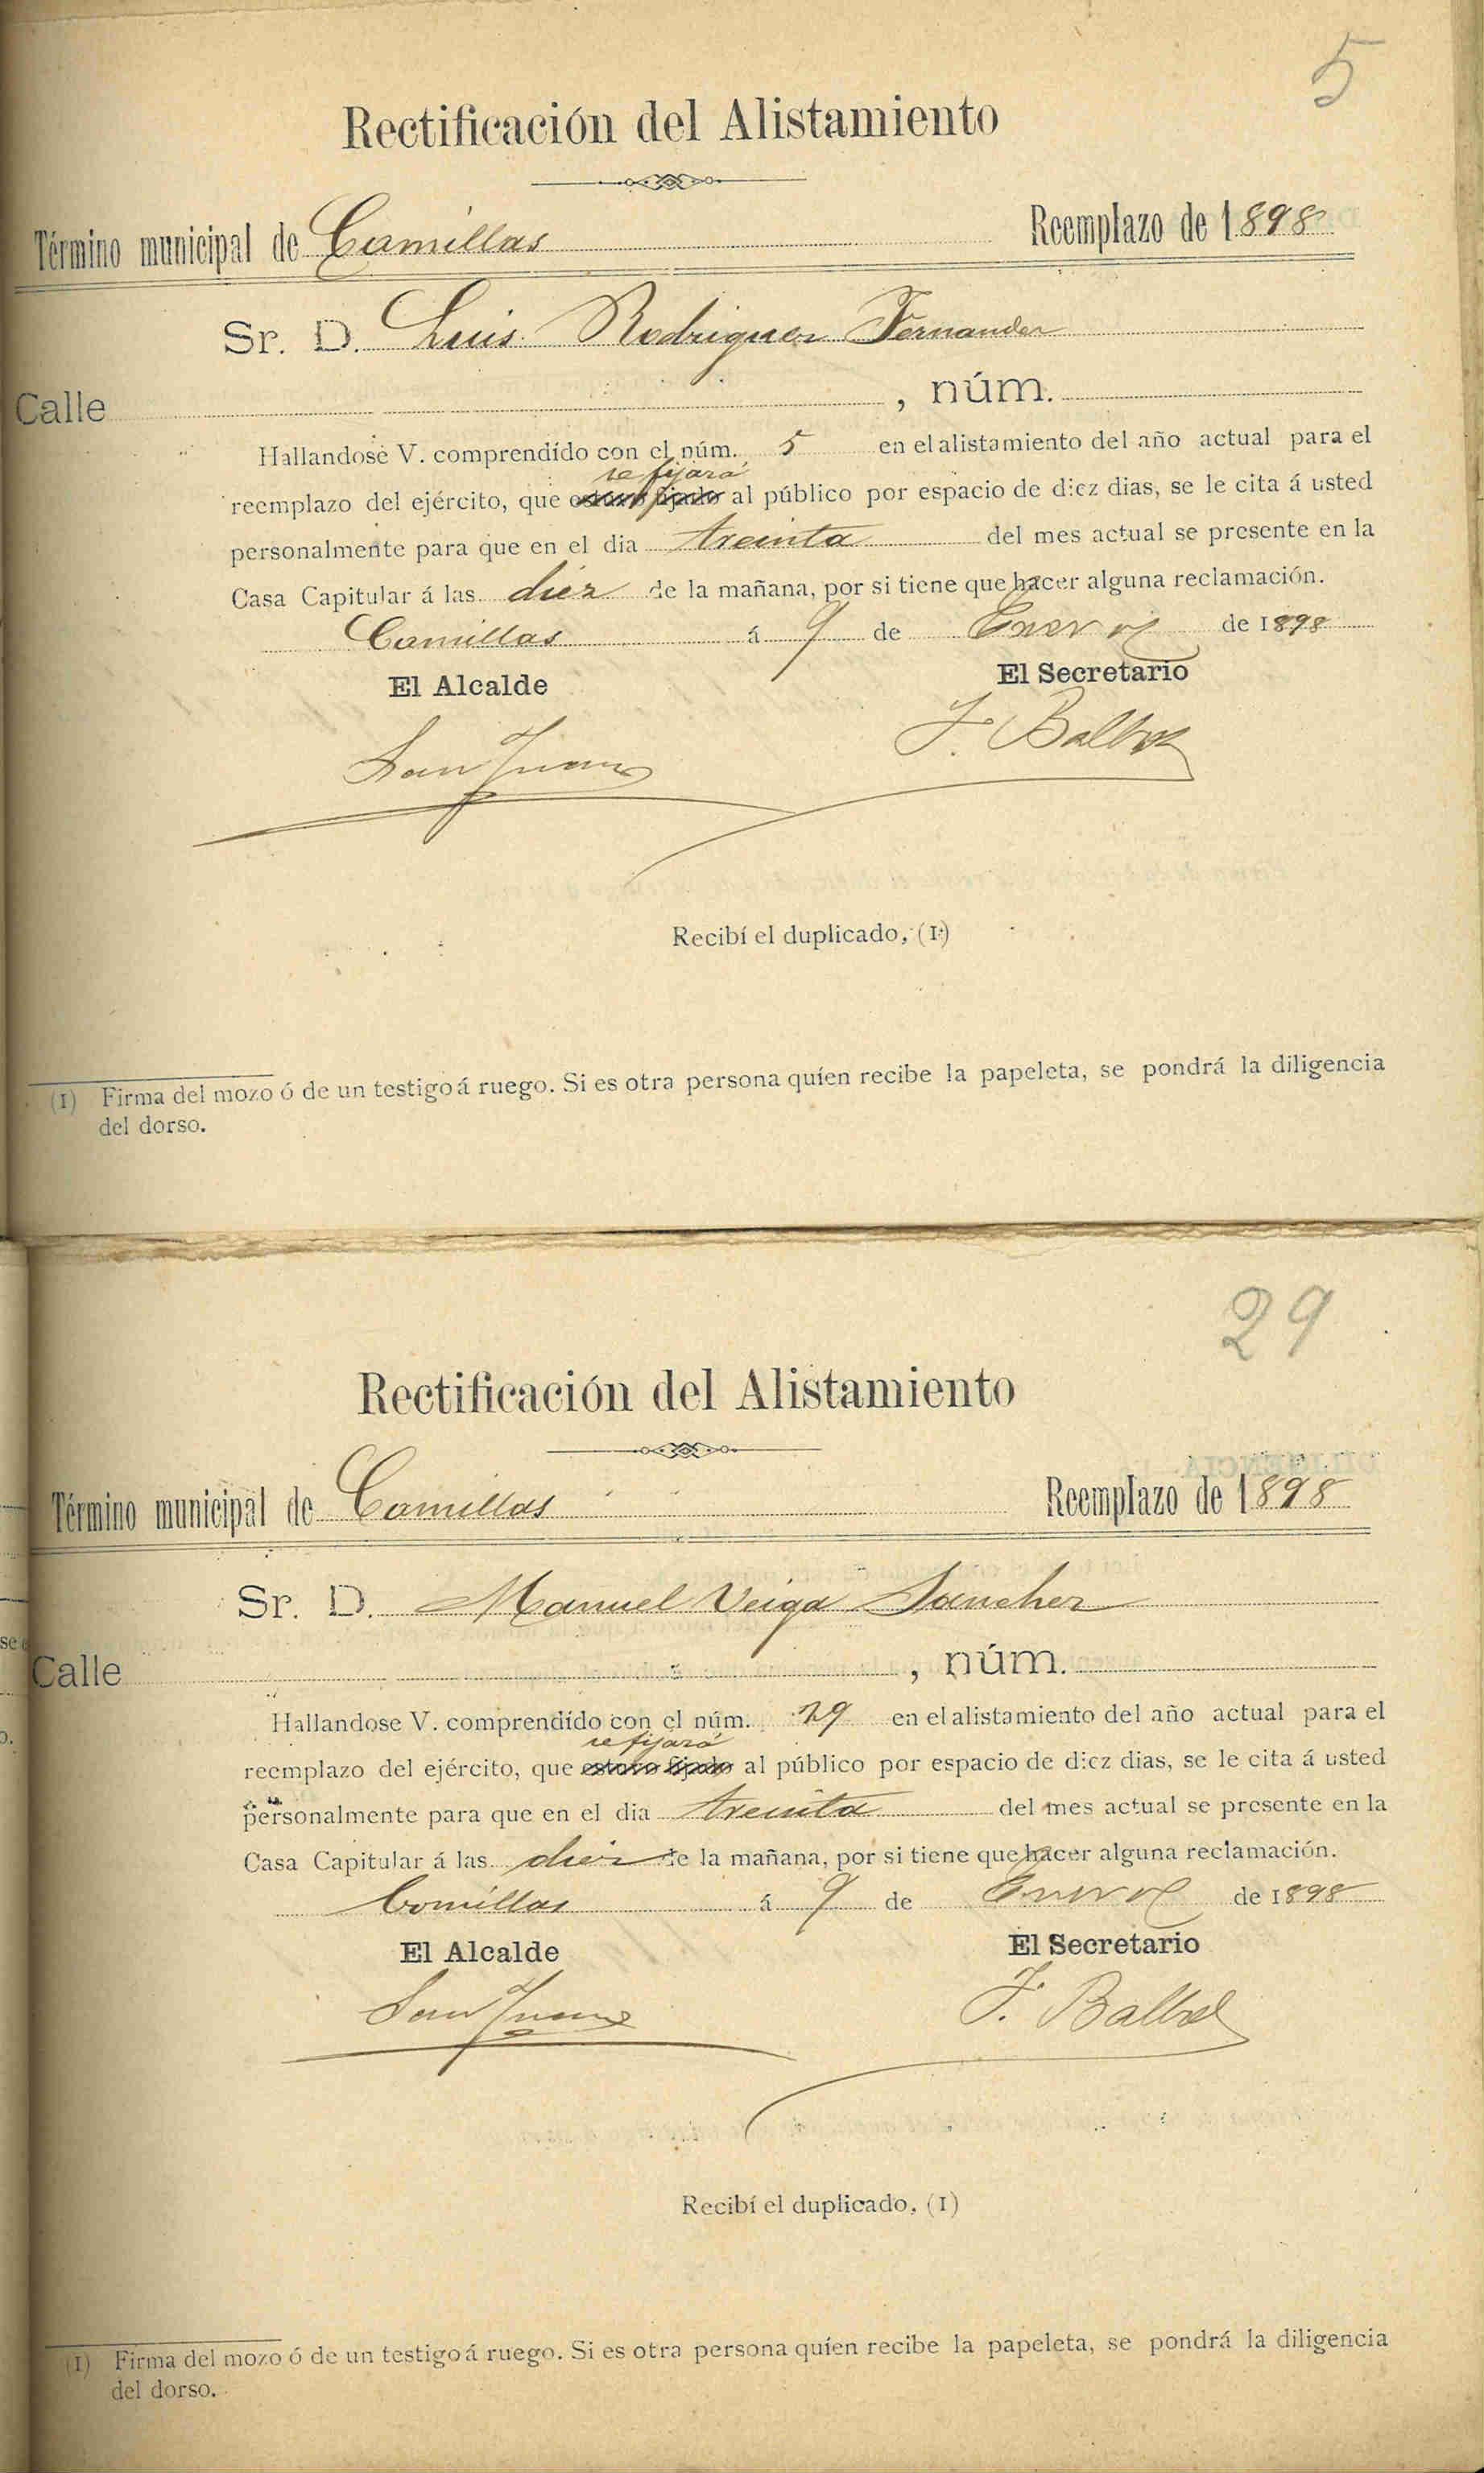 5
Rectificación del Alistamiento
Término municipal de Comillas Reemplazo de 1898
Sr. D. Luis Rodriguez Fernandez
Calle , núm.
Hallandose V. comprendído con el núm. 5 en el alistamiento del año actual para el
se fijará
reemplazo del ejército, que estará fijado al público por espacio de diez dias, se le cita á usted
personalmente para que en el dia treinta del mes actual se presente en la
Casa Capitular á las diez de la mañana, por si tiene que hacer alguna reclamación.
Comillas á 9 de Enero de 1898
El Alcalde El Secretario
San Juan F. Balbás
Recibí el duplicado, (1)
(1) Firma del mozo ó de un testigo á ruego. Si es otra persona quíen recibe la papeleta, se pondrá la diligencia
del dorso.
29
Rectificación del Alistamiento
DILIGENCIA
Término municipal de Comillas Reemplazo de 1898
Sr. D. Manuel Veiga Sanchez
Calle , núm.
Hallandose V. comprendído con el núm. 29 en el alistamiento del año actual para el
se fijará
reemplazo del ejército, que estará fijado al público por espacio de diez dias, se le cita á usted
personalmente para que en el dia treinta del mes actual se presente en la
Casa Capitular á las diez de la mañana, por si tiene que hacer alguna reclamación.
Comillas á 9 de Enero de 1898
El Alcalde El Secretario
San Juan F. Balbás
Recibí el duplicado, (1)
(1) Firma del mozo ó de un testigo á ruego. Si es otra persona quíen recibe la papeleta, se pondrá la diligencia
del dorso.